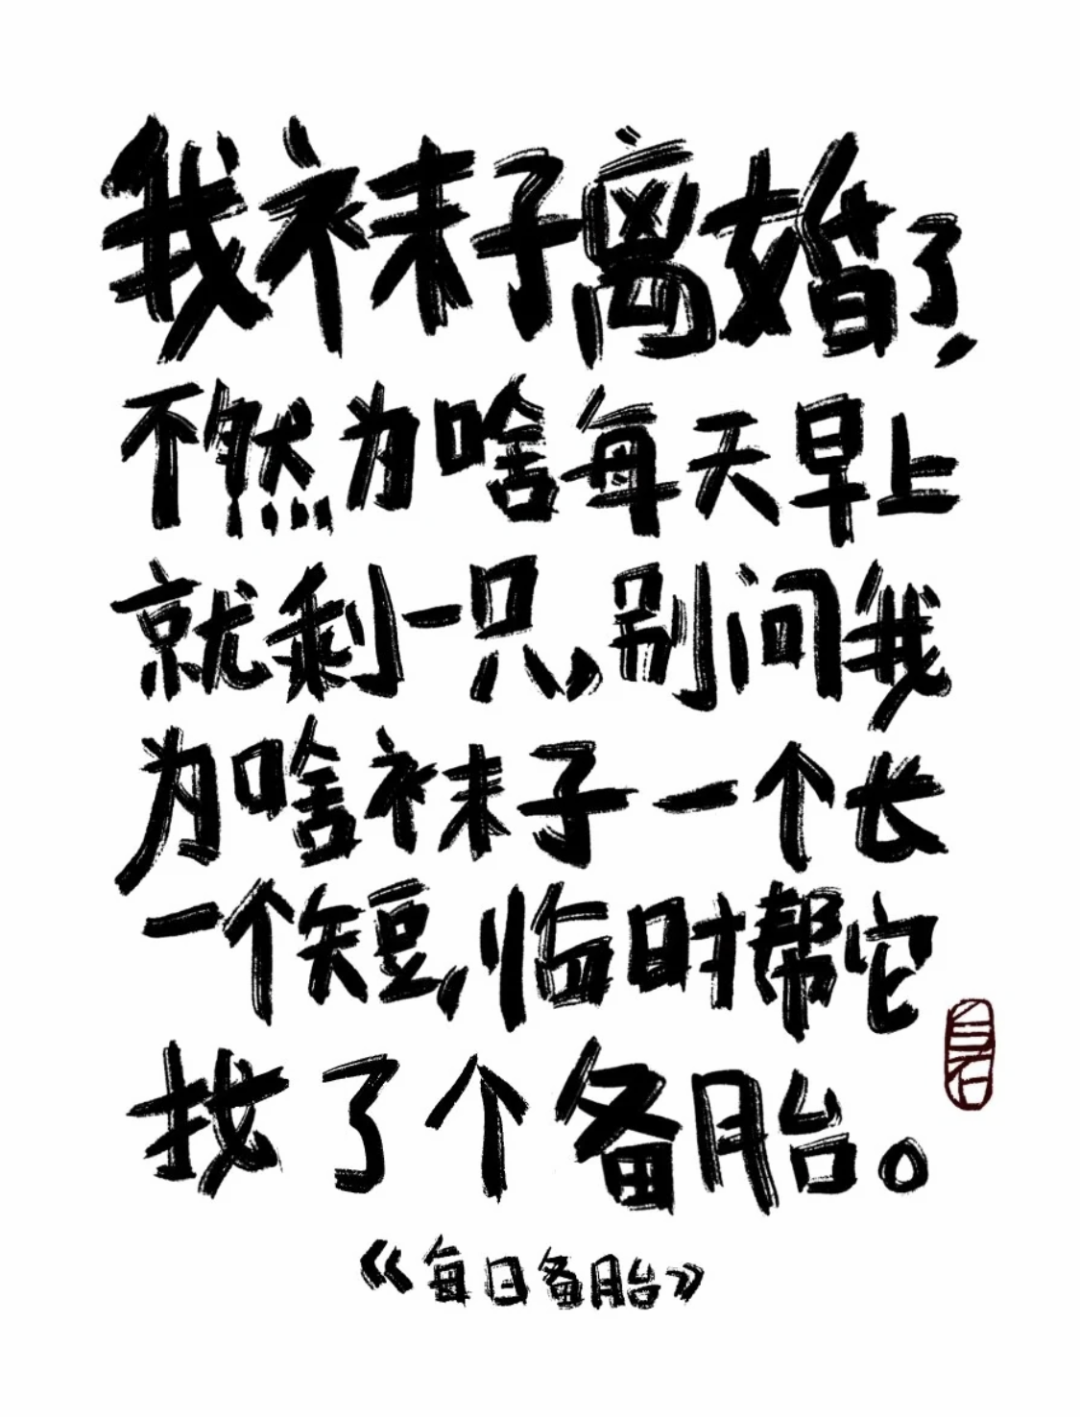 我袜子离婚了，
不然为啥每天早上
就剩一只，别问我
为啥袜子一个长
一个短，临时帮它
找了个备胎。
《每日备胎》